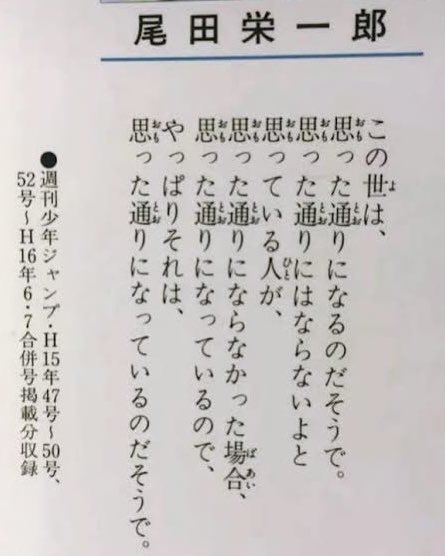 尾田栄一郎
この世は、
思った通りになるのだそうで。
思った通りにはならないよと
思っている人が、
思った通りにならなかった場合、
思った通りになっているので、
やっぱりそれは、
思った通りになっているのだそうで。
●週刊少年ジャンプ・H15年47号〜50号、
52号〜H16年6・7合併号掲載分収録